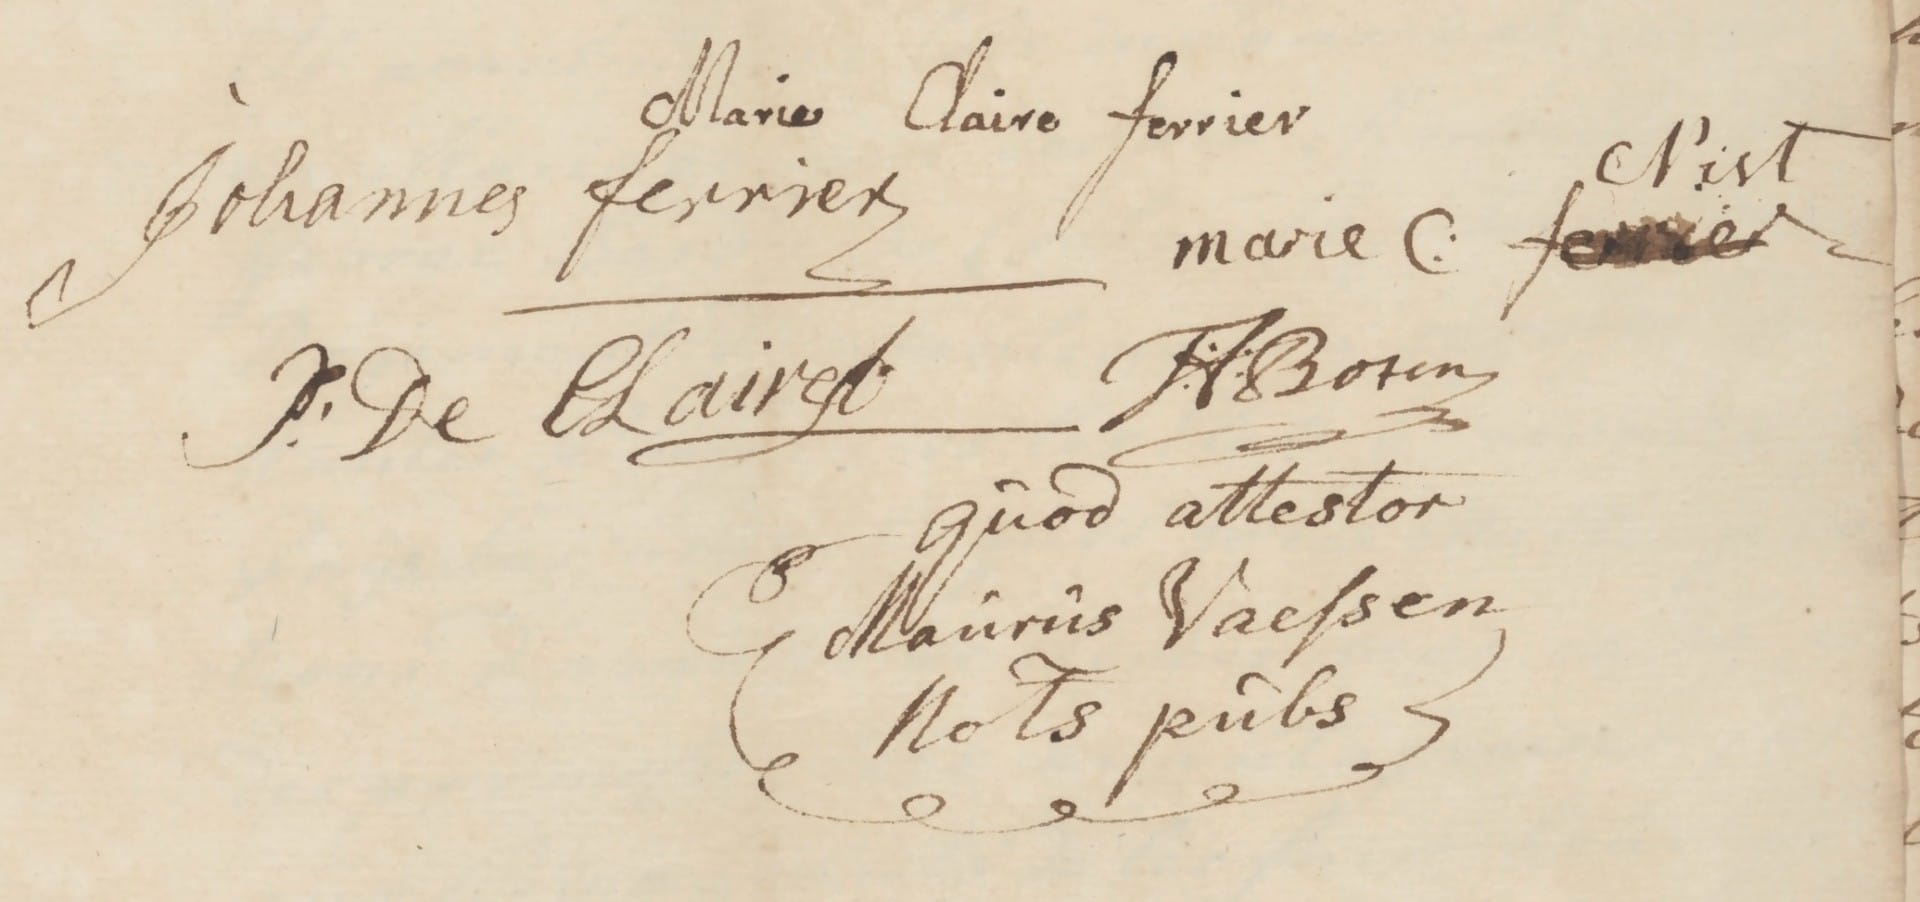 Marie Claire ferrier
Johannes ferrier
Nist
marie C: ferrier
P: De CLairet
H: Bosen
quod attestor
Maurus Vaessen
Nots pubs